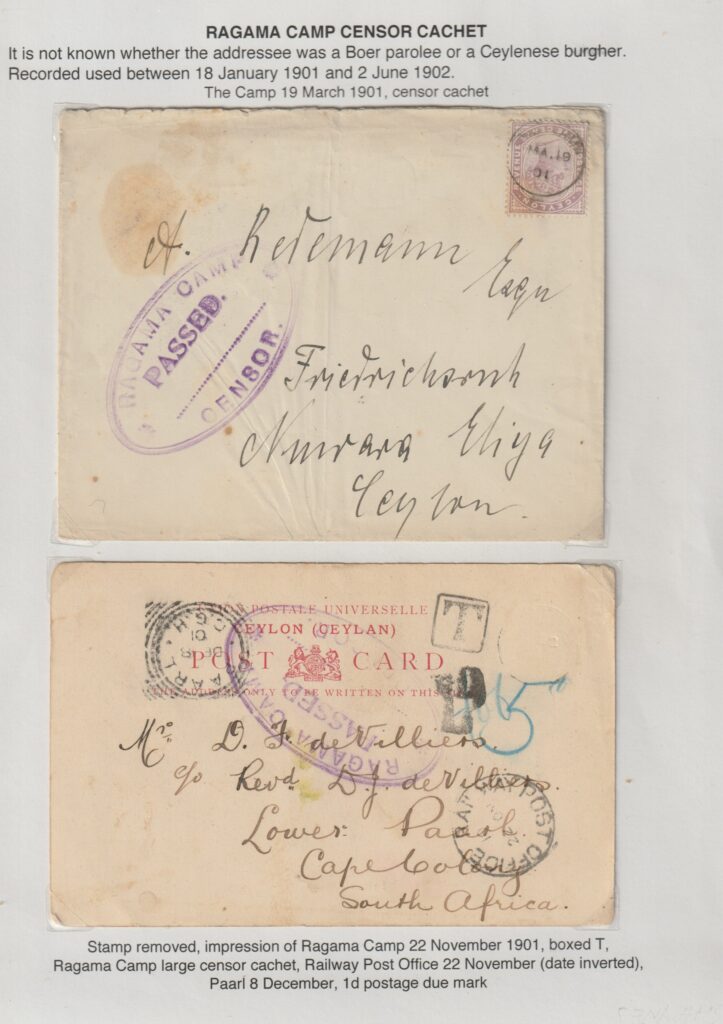 RAGAMA CAMP CENSOR CACHET
It is not known whether the addressee was a Boer parolee or a Ceylenese burgher.
Recorded used between 18 January 1901 and 2 June 1902.
The Camp 19 March 1901, censor cachet
CEYLON
A. Redemann
Esqu
RAGAMA CAMP
PASSED.
CENSOR.
Friedrichsruh
Nuwara Eliya
Ceylon.
UNION POSTALE UNIVERSELLE
CEYLON (CEYLAN)
POST CARD
THE ADDRESS ONLY TO BE WRITTEN ON THIS
PAARL
C.G.H
DE 8
01
T
1D
RAGAMA CAMP
PASSED
Mrs D. F. de Villiers.
c/o Revd D. J. de Villiers.
Lower Paarl.
Cape Colony
South Africa.
RAILWAY POST OFFICE
Stamp removed, impression of Ragama Camp 22 November 1901, boxed T,
Ragama Camp large censor cachet, Railway Post Office 22 November (date inverted),
Paarl 8 December, 1d postage due mark